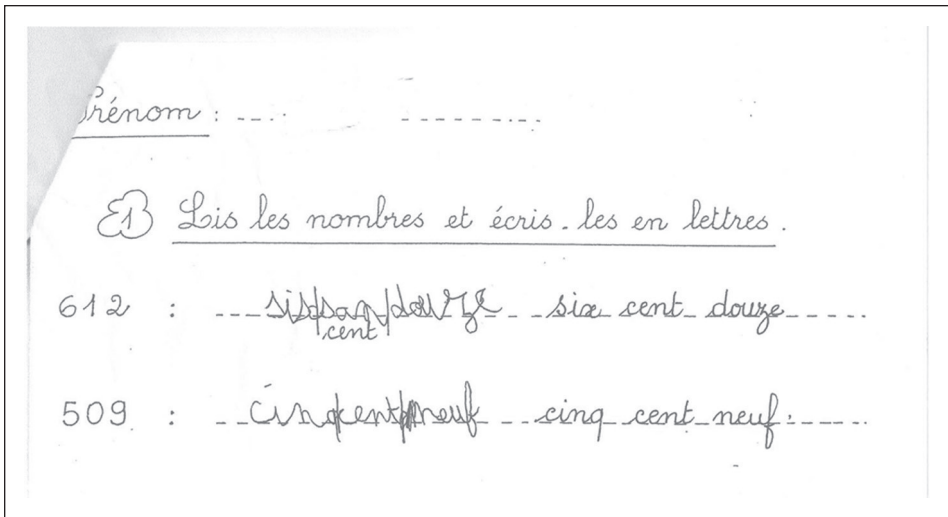 Prénom :
1 Lis les nombres et écris-les en lettres.
612 : sis/san/douze six cent douze
cent
509 : cinqcent/neuf cinq cent neuf.